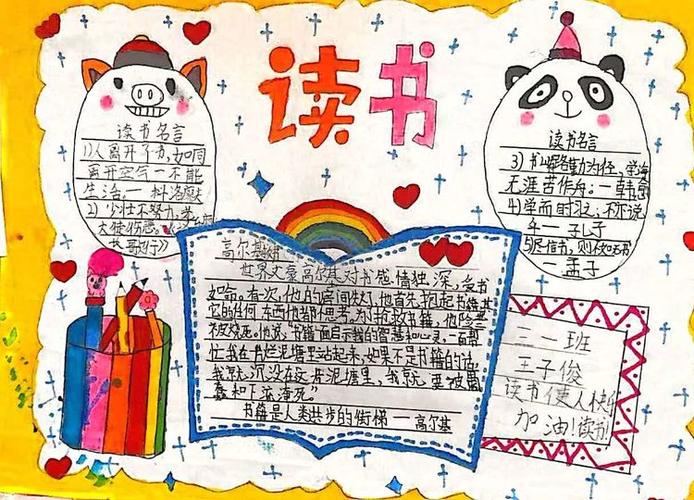 读书
读书名言
1)人离开了书,如同
离开空气一不能
生活:一科洛廖夫
2)少壮不努力,
读书名言
3)书山有路勤为径,学海
无涯苦作舟:一韩愈
4)学而时习之,不亦说
乎—孔子
5)尽信书,则不如无书
—孟子
世界文豪高尔基对书感情独深,爱书
如命。有次,他的房间失火了,他首先抱起书籍,其
它的任何东西他都不思考。为了抢救书籍,他险些
被烧死。他说:"书籍一面启示我的智慧和心灵,一面帮
忙我在一片烂泥塘里站起来,如果不是书籍的话,
我就沉没在这片泥塘里,我就要被愚
蠢和下流淹死。"
书籍是人类进步的阶梯—高尔基
三一班
王子俊
读书使人快乐
加油!读书!